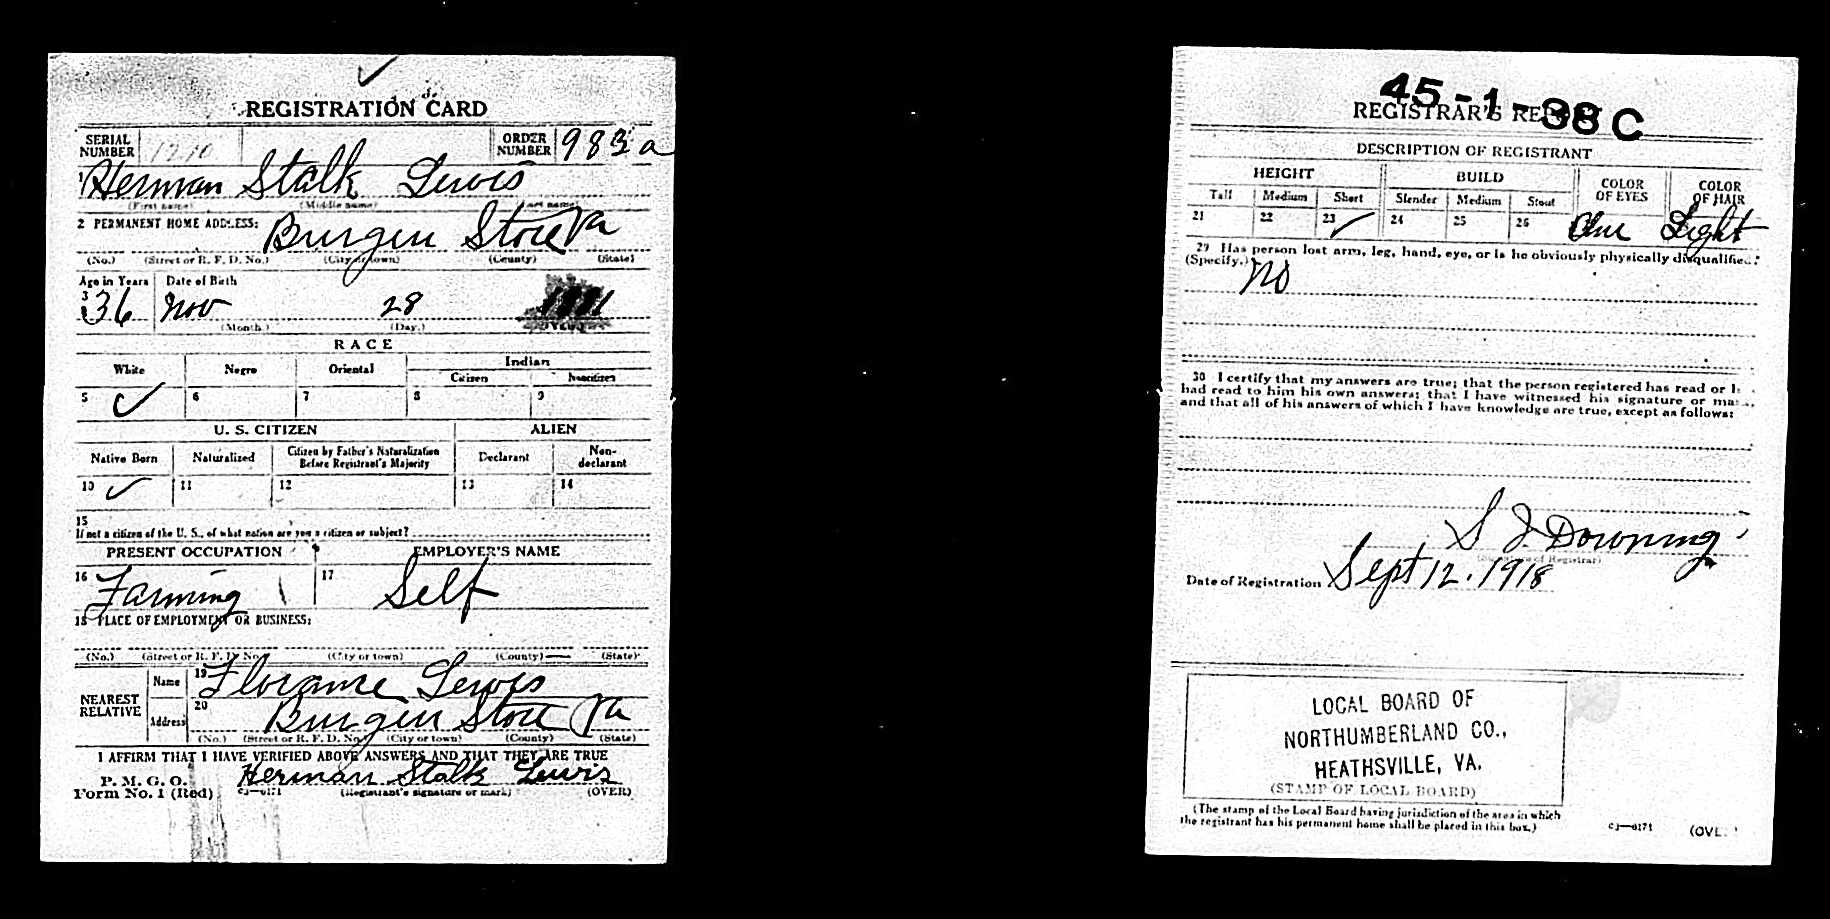 REGISTRATION CARD
SERIAL NUMBER 1210 ORDER NUMBER 983 a
1 Herman Stalk Lewis
(First name) (Middle name) (Last name)
2 PERMANENT HOME ADDRESS: Burgen Store Va
(No.) (Street or R. F. D. No.) (City or town) (County) (State)
Age in Years Date of Birth
3 36 Nov 28 1881
(Month.) (Day.)
RACE
White Negro Oriental Indian
Citizen Noncitizen
5 ✓ 6 7 8 9
U. S. CITIZEN ALIEN
Native Born Naturalized Citizen by Father's Naturalization Before Registrant's Majority Declarant Non-declarant
10 ✓ 11 12 13 14
15
If not a citizen of the U. S., of what nation are you a citizen or subject?
PRESENT OCCUPATION EMPLOYER'S NAME
16 Farming 17 Self
18 PLACE OF EMPLOYMENT OR BUSINESS:
(No.) (Street or R. F. D. No.) (City or town) (County) (State)
NEAREST RELATIVE Name 19 Lewis
Address 20 Burgen Store Va
(No.) (Street or R. F. D. No.) (City or town) (County) (State)
I AFFIRM THAT I HAVE VERIFIED ABOVE ANSWERS AND THAT THEY ARE TRUE
P. M. G. O.
Form No. 1 (Red) c3—6171 Herman Stalk Lewis
(Registrant's signature or mark) (OVER)
45-1-38 C
REGISTRAR'S REPORT
DESCRIPTION OF REGISTRANT
HEIGHT BUILD COLOR OF EYES COLOR OF HAIR
Tall Medium Short Slender Medium Stout
21 22 23 ✓ 24 25 26 Blue Light
29 Has person lost arm, leg, hand, eye, or is he obviously physically disqualified?
(Specify.) No
30 I certify that my answers are true; that the person registered has read or
had read to him his own answers; that I have witnessed his signature or
and that all of his answers of which I have knowledge are true, except as follows:
S J Downing
(Signature of Registrar)
Date of Registration Sept 12. 1918
LOCAL BOARD OF
NORTHUMBERLAND CO.,
HEATHSVILLE, VA.
(STAMP OF LOCAL BOARD)
(The stamp of the Local Board having jurisdiction of the area in which
the registrant has his permanent home shall be placed in this box.)
c3—6171 (OVER)